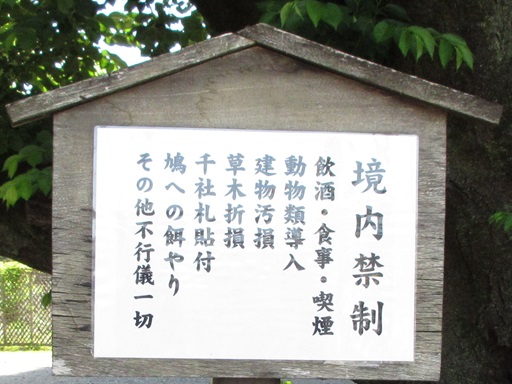 境内禁制
飲酒・食事・喫煙
動物類導入
建物汚損
草木折損
千社札貼付
鳩への餌やり
その他不行儀一切